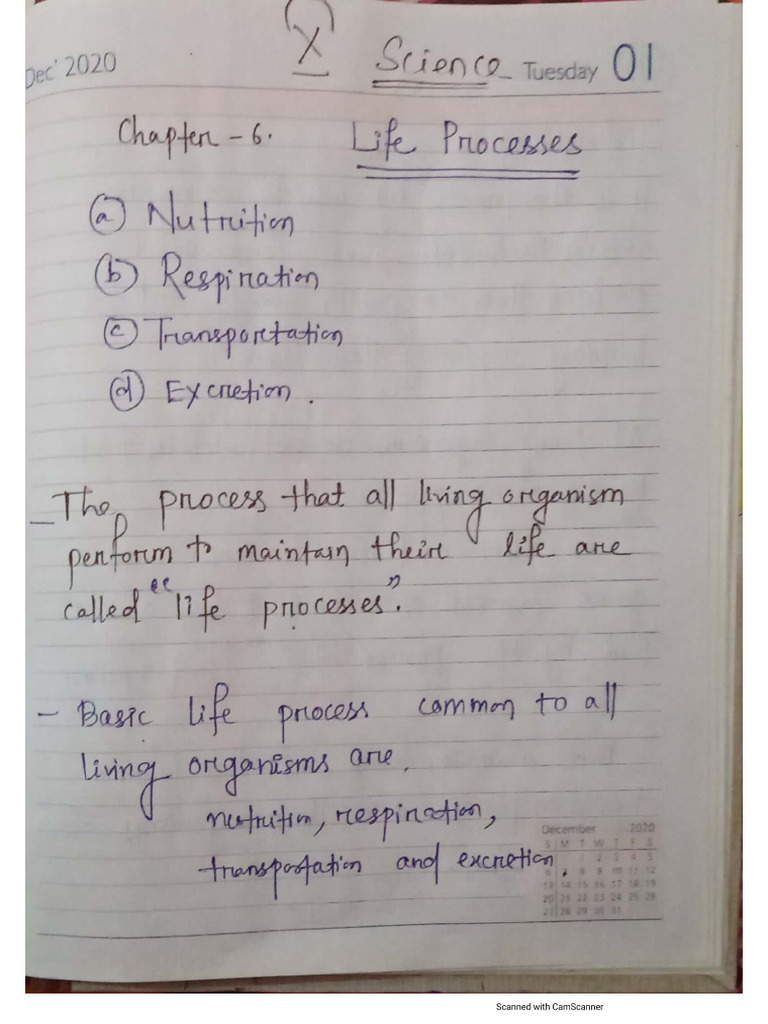 X Science
Dec' 2020 Tuesday 01
Chapter - 6. Life Processes
(a) Nutrition
(b) Respiration
(c) Transportation
(d) Excretion.
- The process that all living organism
perform to maintain their life are
called "life processes".
- Basic life process common to all
living organisms are.
nutrition, respiration,
transportation and excretion.
December 2020
S M T W T F S
1 2 3 4 5
6 7 8 9 10 11 12
13 14 15 16 17 18 19
20 21 22 23 24 25 26
27 28 29 30 31
Scanned with CamScanner